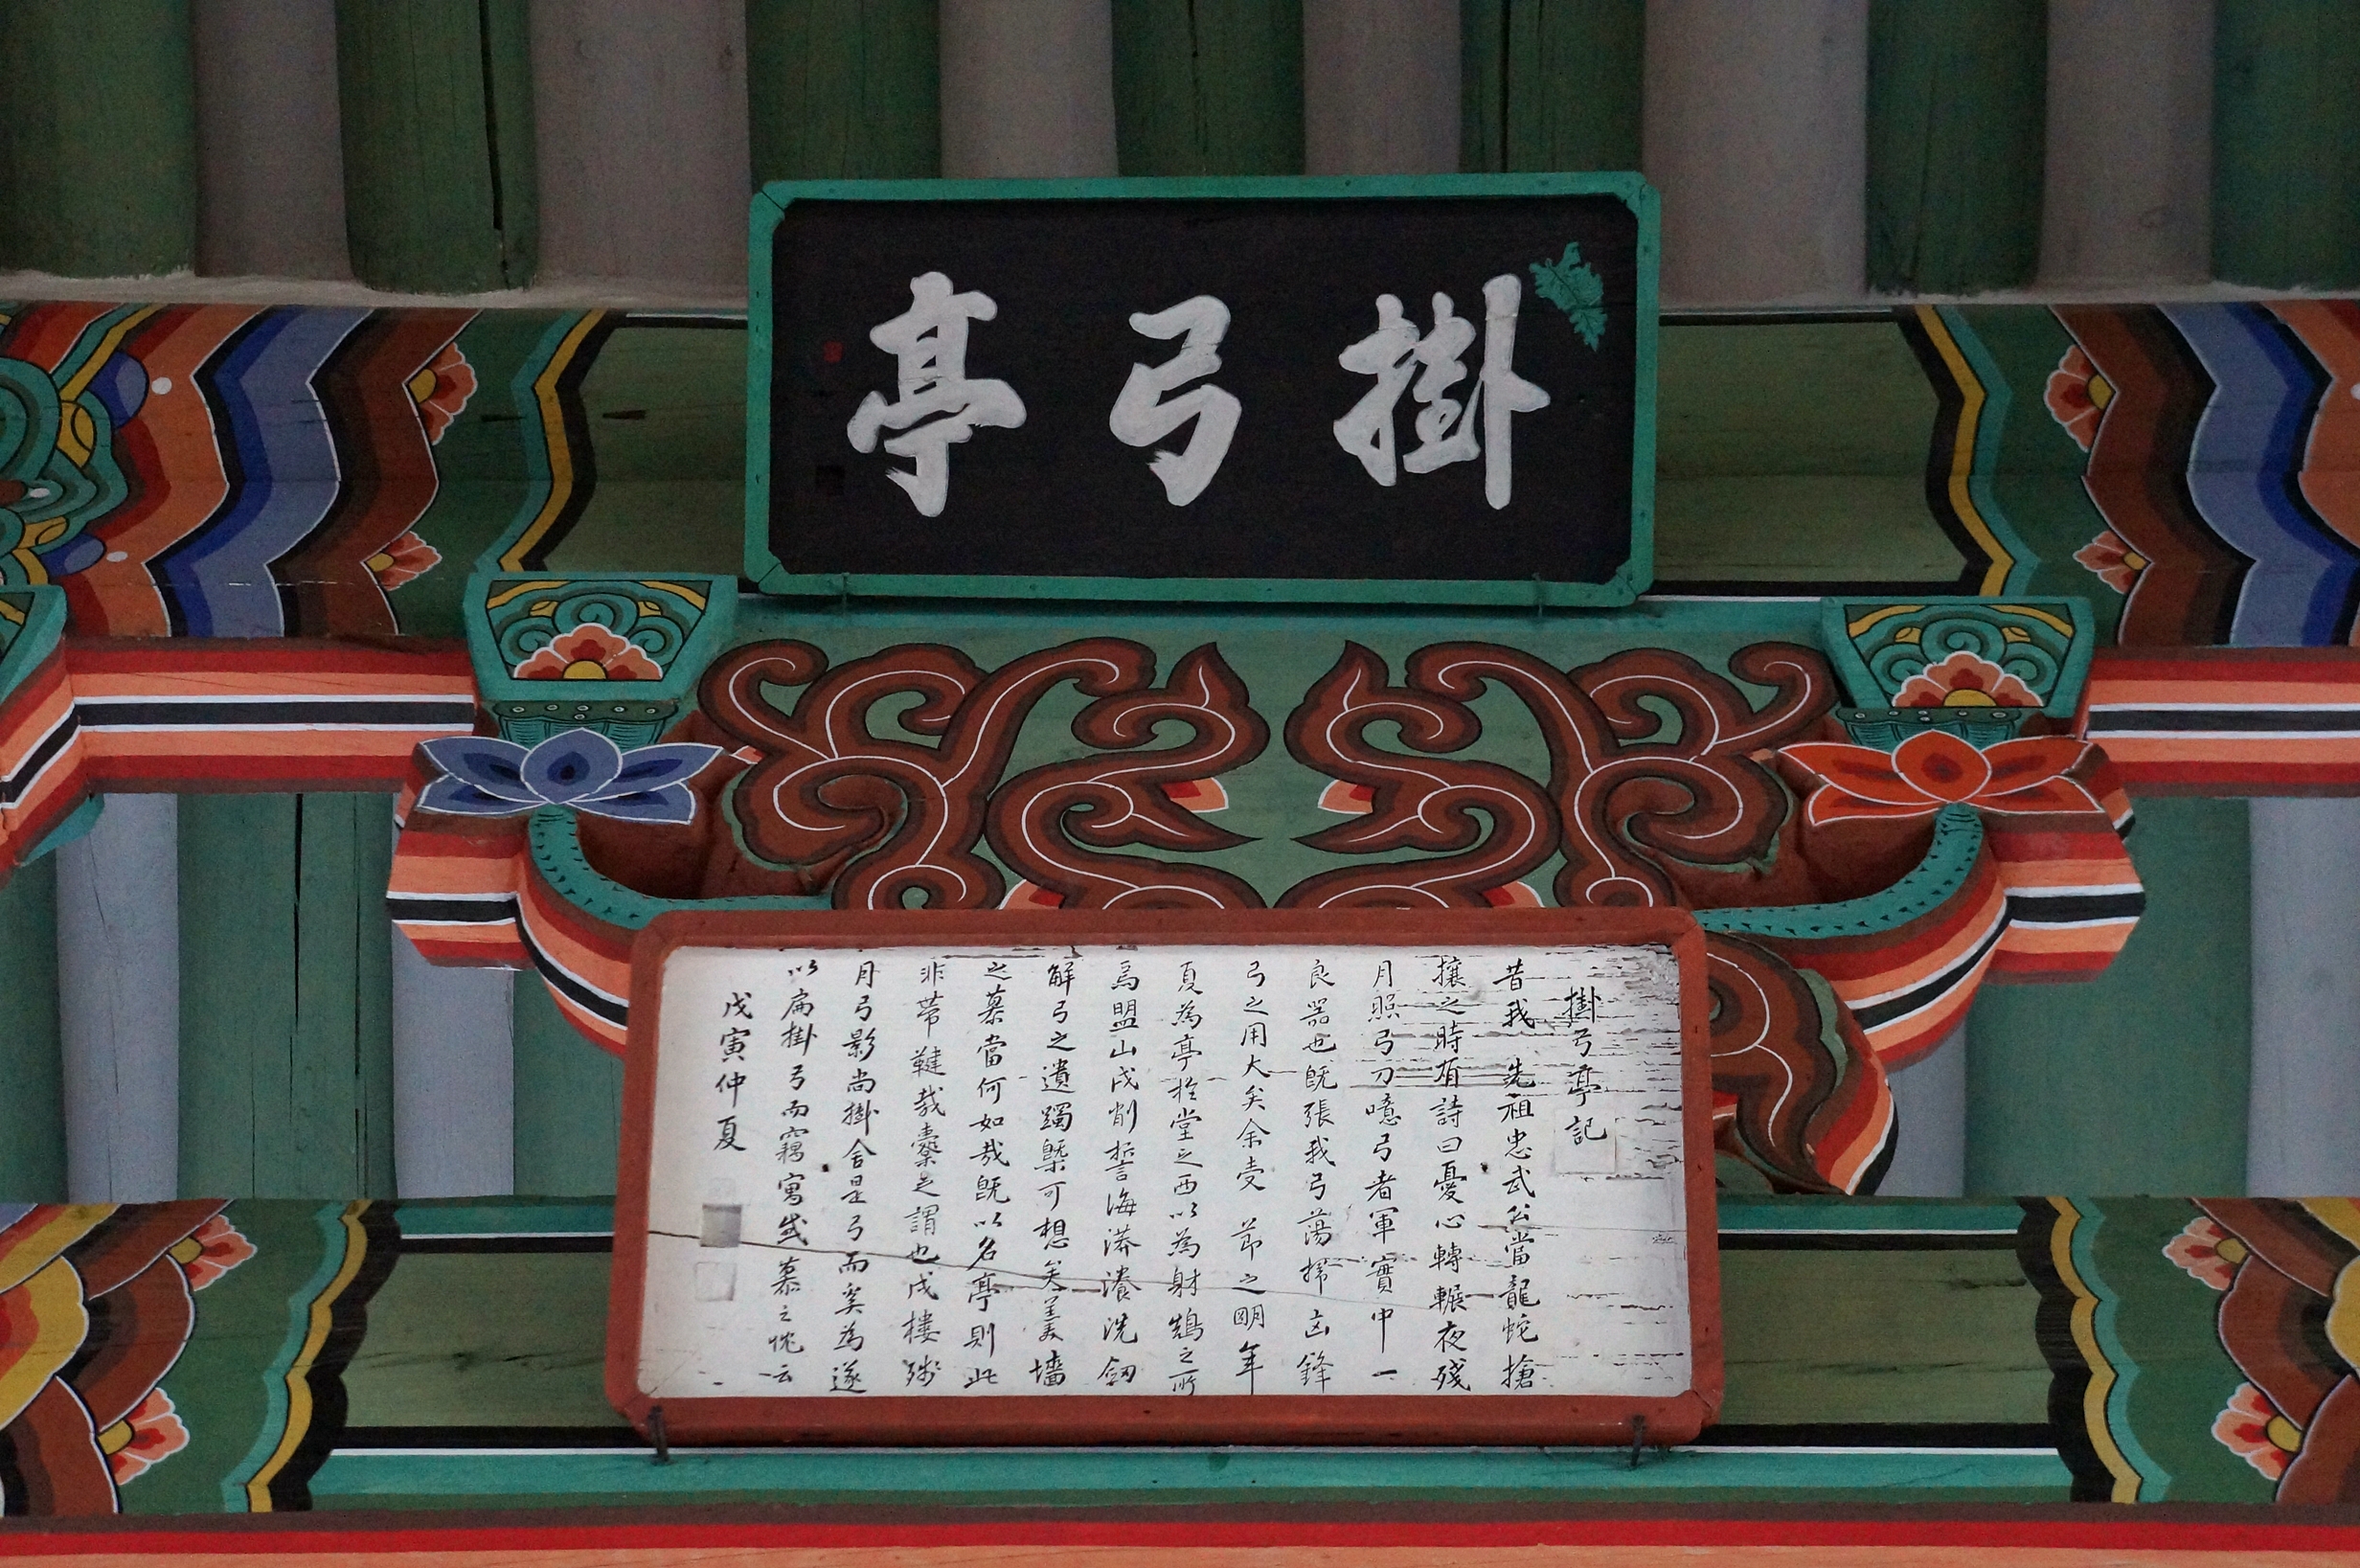 掛弓亭
掛弓亭記
昔我 先祖忠武公當龍蛇搶
攘之時有詩曰憂心轉輾夜殘
月照弓刀噫弓者軍實中一
良器也旣張我弓蕩掃凶鋒
弓之用大矣余受 節之明年
夏為亭於堂之西以為射鵠之所
焉盟山戍削誓海漭瀁洗劒
解弓之遺躅槩可想矣羹墻
之慕當何如哉旣以名亭則此
非帶鞬哉櫜之謂也戍樓殘
月弓影尚掛舍是弓而奚為遂
以扁掛弓而竊寓感慕之忱云
戊寅仲夏